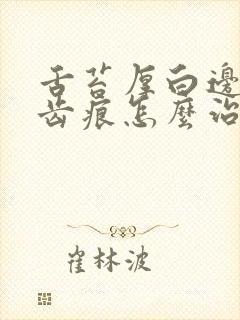 舌苔厚白邊
齿痕怎麼治
崔林波